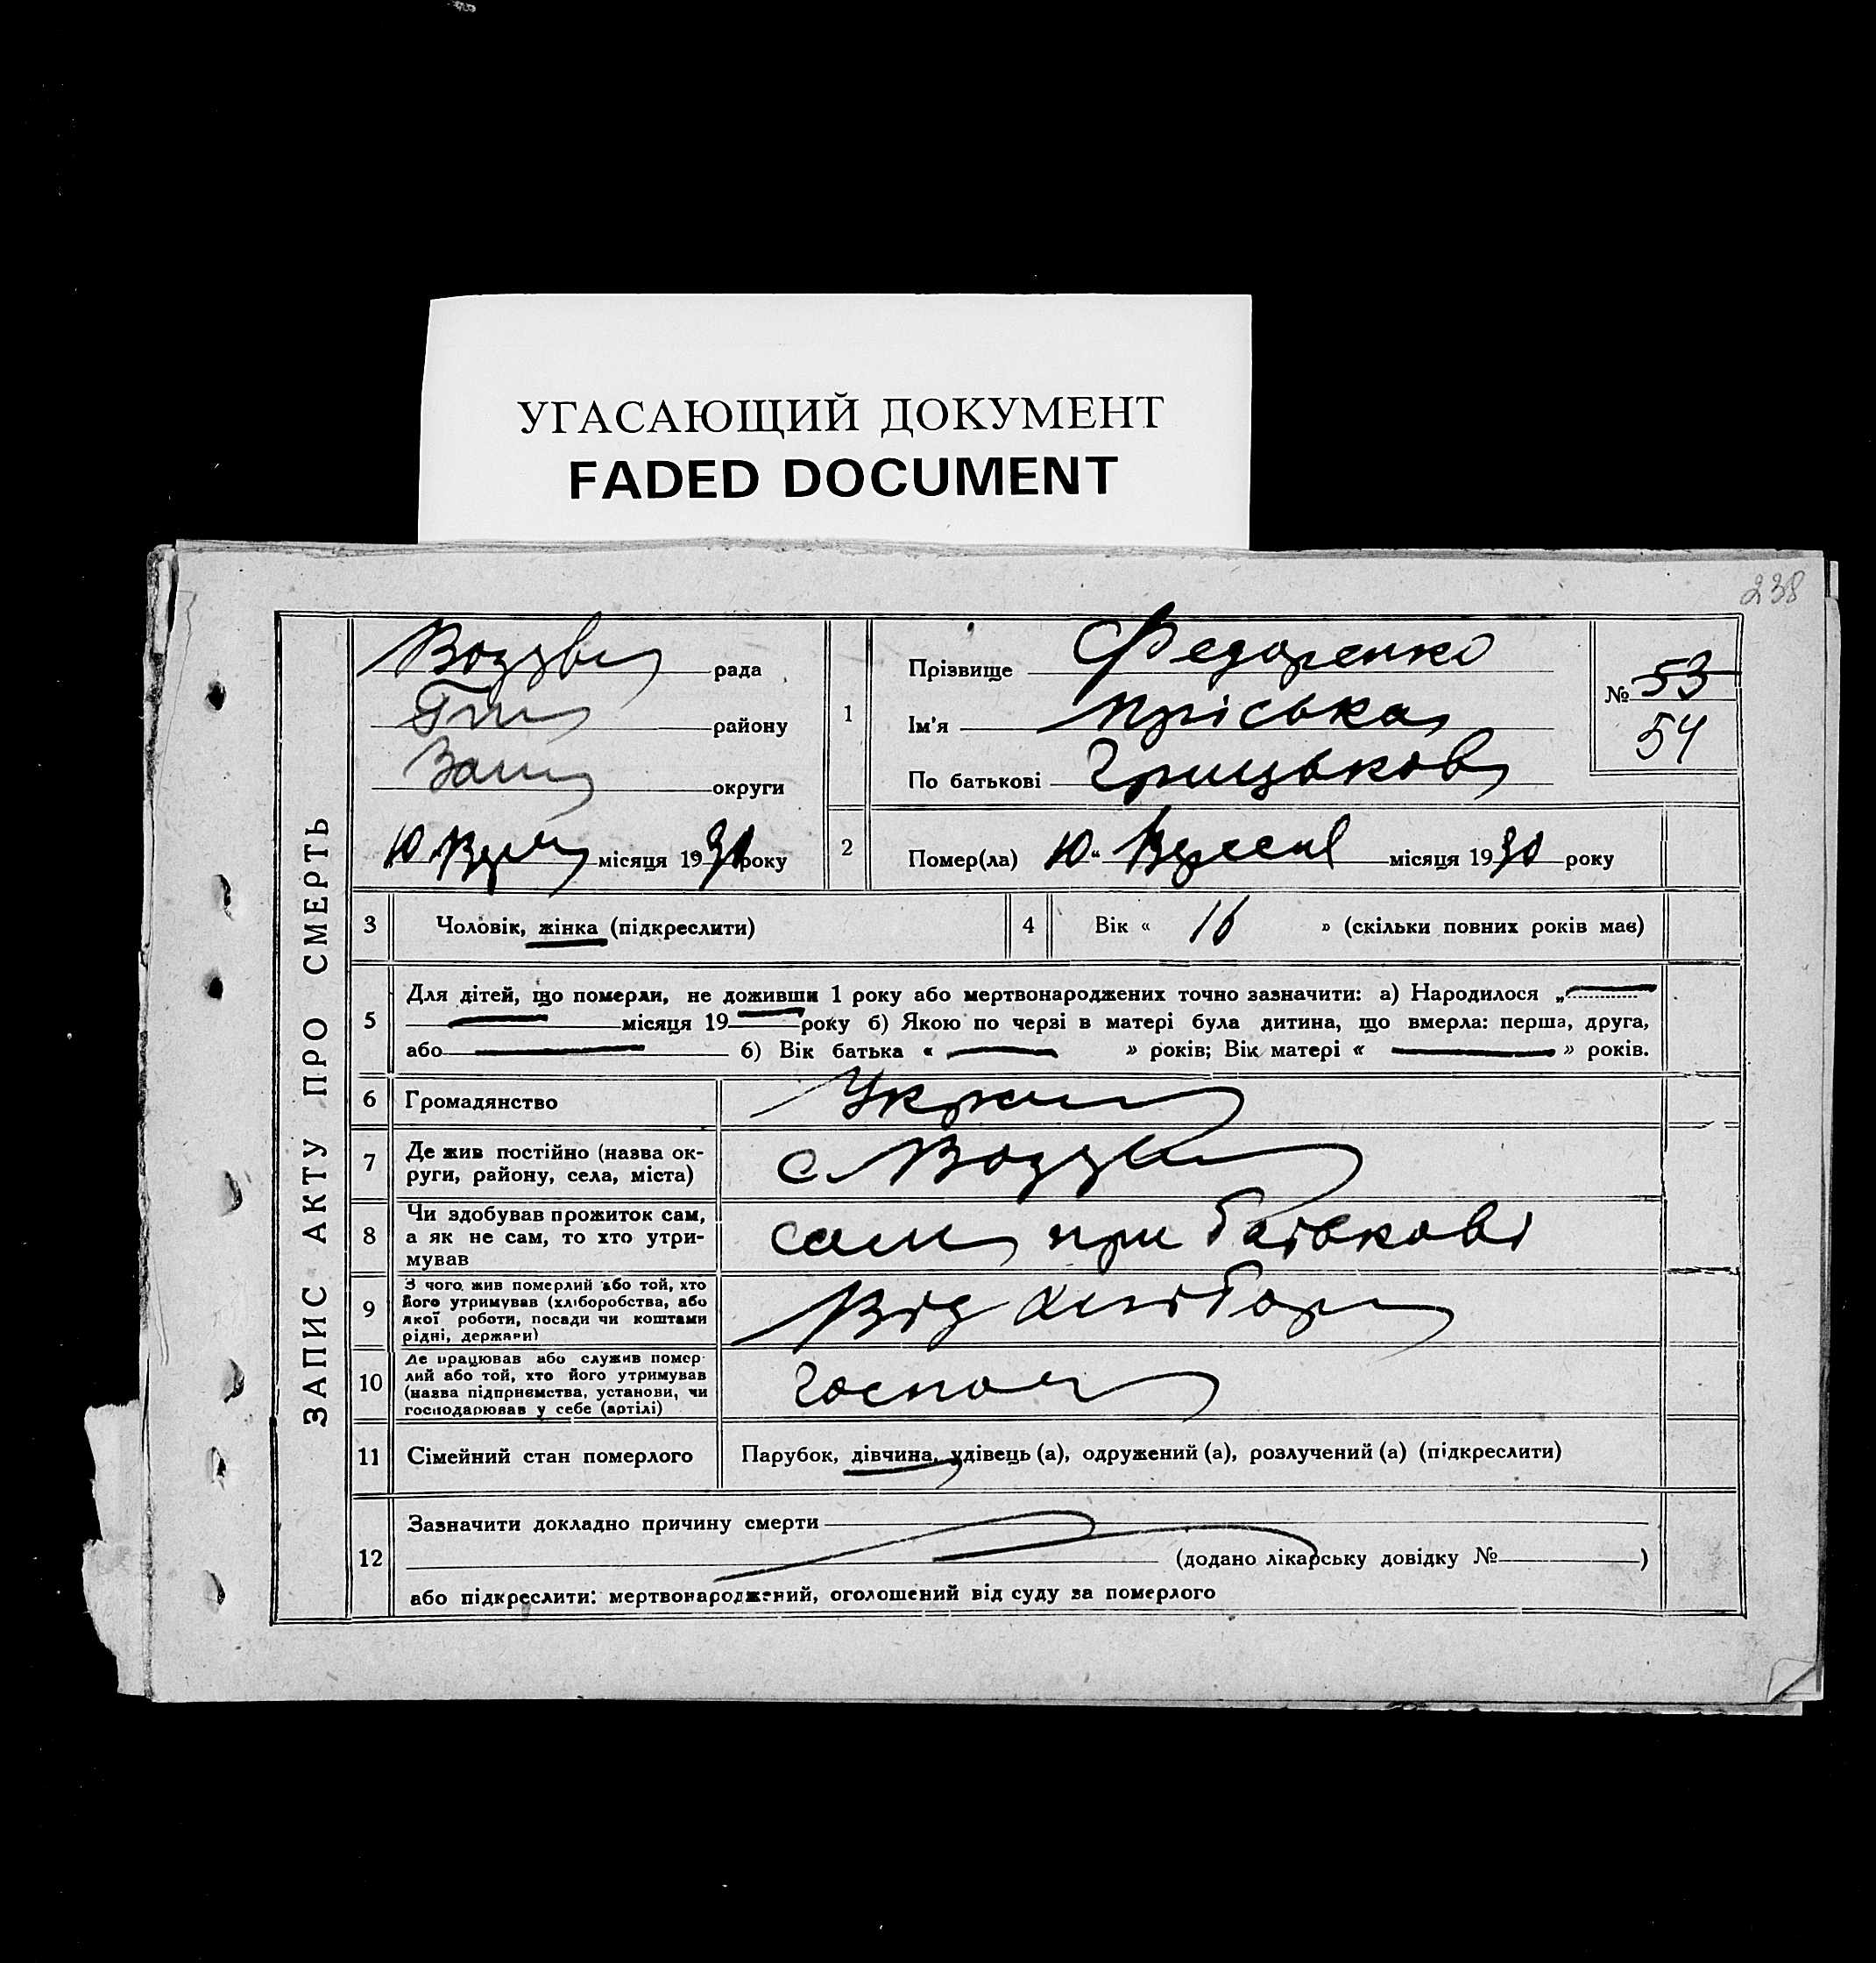 УГАСАЮЩИЙ ДОКУМЕНТ
FADED DOCUMENT
238
ЗАПИС АКТУ ПРО СМЕРТЬ
рада
району
округи
10 місяця 1930 року
1
Прізвище Федоренко
Ім'я Пріська
По батькові Грицьков
№ 53
54
2
Помер(ла) 10 " Вересня місяця 1930 року
3 Чоловік, жінка (підкреслити)
4 Вік « 16 » (скільки повних років має)
5
Для дітей, що померли, не доживши 1 року або мертвонароджених точно зазначити: а) Народилося „
місяця 19 року б) Якою по черзі в матері була дитина, що вмерла: перша, друга,
або б) Вік батька « » років; Вік матері « » років.
6 Громадянство Украї
7
Де жив постійно (назва ок-
руги, району, села, міста)
с
8
Чи здобував прожиток сам,
а як не сам, то хто утри-
мував
сам при батькові
9
З чого жив померлий або той, хто
його утримував (хліборобства, або
якої роботи, посади чи коштами
рідні, держави)
Від хлібор
10
Де працював або служив помер-
лий або той, хто його утримував
(назва підприємства, установи, чи
господарював у себе (артілі)
Госпо
11 Сімейний стан померлого Парубок, дівчина, удівець (а), одружений (а), розлучений (а) (підкреслити)
12
Зазначити докладно причину смерти
(додано лікарську довідку № )
або підкреслити: мертвонароджений, оголошений від суду за померлого